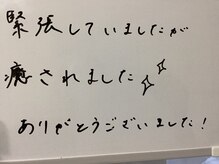 緊張していましたが
癒されました✨
ありがとうございました!